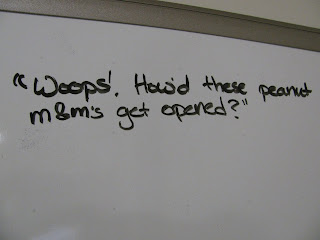 "Woops!. How'd these peanut
m&m's get opened?"